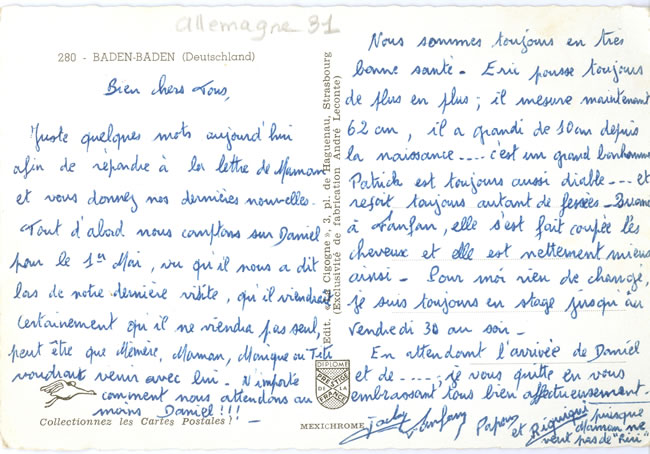 allemagne 31
280 - BADEN-BADEN (Deutschland)
Bien chers Tous,
Juste quelques mots aujourd'hui
afin de répondre à la lettre de Maman
et vous donnez nos dernières nouvelles.
Tout d'abord nous comptons sur Daniel
pour le 1er Mai, vu qu'il nous a dit
lors de notre dernière visite, qu'il viendrait
Certainement qu'il ne viendra pas seul,
peut être que Mémère, Maman, Monique ou Titi
voudront venir avec lui. N'importe
comment nous attendons au
moins Daniel !!!
Collectionnez les Cartes Postales !
Edit. « La Cigogne », 3, pl. de Haguenau, Strasbourg
(Exclusivité de fabrication André Leconte)
DIPLOME
PRESTIGE
DE LA
FRANCE
MEXICHROME
Nous sommes toujours en très
bonne santé - Eric pousse toujours
de plus en plus ; il mesure maintenant
62 cm, il a grandi de 10 cm depuis
la naissance .... c'est un grand bonhomme
Patrick est toujours aussi diable .... et
reçoit toujours autant de fessées -
à Fanfan, elle s'est fait coupée les
cheveux et elle est nettement mieux
ainsi - Pour moi rien de changé,
je suis toujours en stage jusqu'au
vendredi 30 au soir -
En attendant l'arrivée de Daniel
et de ......, je vous quitte en vous
embrassant tous bien affectueusement.
Jacky Fanfan Papou
et Riquiqui puisque
Maman ne
veut pas de "Riri"